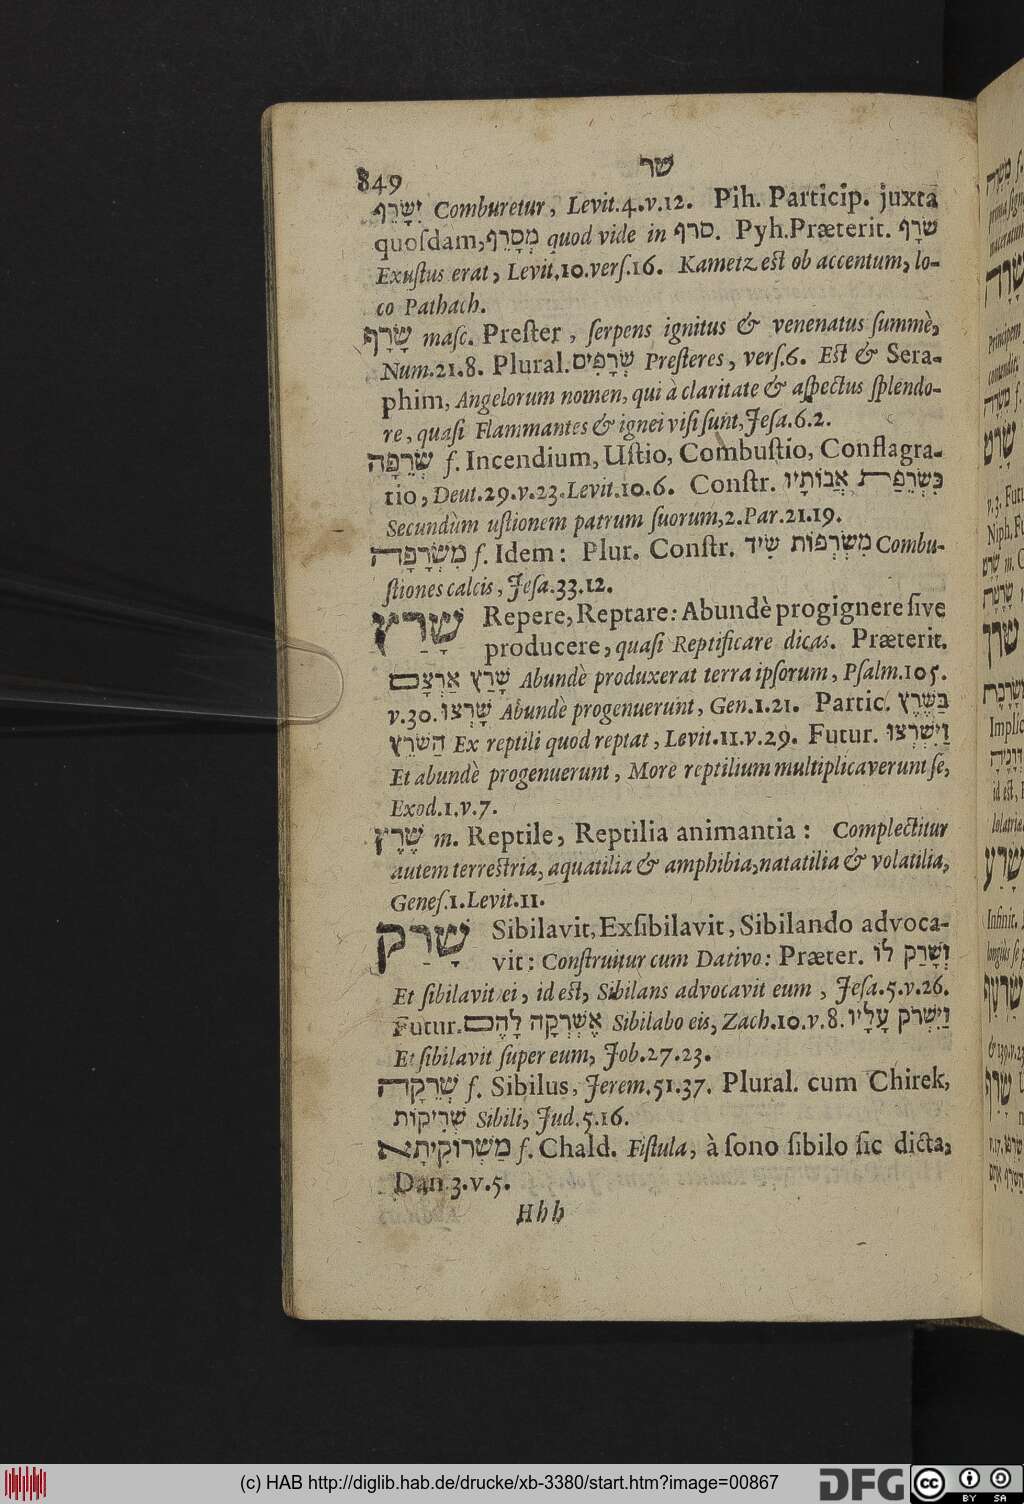 849 שר
יִשָּׂרֵף Comburetur, Levit.4.v.12. Pih. Particip. juxta
quoſdam, מְסָרֵף quod vide in סרף. Pyh. Præterit. שֹׂרָף
Exuſtus erat, Levit.10.verſ.16. Kametz eſt ob accentum, lo-
co Pathach.
שָׂרָף maſc. Preſter, ſerpens ignitus & venenatus ſummè,
Num.21.8. Plural. שְׂרָפִים Preſteres, verſ.6. Eſt & Sera-
phim, Angelorum nomen, qui à claritate & aſpectus ſplendo-
re, quaſi Flammantes & ignei viſi ſunt, Jeſa.6.2.
שְׂרֵפָה f. Incendium, Uſtio, Combuſtio, Conflagra-
tio, Deut.29.v.23. Levit.10.6. Conſtr. כִּשְׂרֵפַת אֲבוֹתָיו
Secundùm uſtionem patrum ſuorum, 2.Par.21.19.
מִשְׂרָפָה f. Idem: Plur. Conſtr. מִשְׂרְפוֹת שִׂיד Combu-
ſtiones calcis, Jeſa.33.12.
שָׁרַץ Repere, Reptare: Abundè progignere ſive
producere, quaſi Reptificare dicas. Præterit.
שָׁרַץ אַרְצָם Abundè produxerat terra ipſorum, Pſalm.105.
v.30. שָׁרְצוּ Abundè progenuerunt, Gen.1.21. Partic. בַּשֶּׁרֶץ
הַשֹּׁרֵץ Ex reptili quod reptat, Levit.11.v.29. Futur. וַיִּשְׁרְצוּ
Et abundè progenuerunt, More reptilium multiplicaverunt ſe,
Exod.1.v.7.
שֶׁרֶץ m. Reptile, Reptilia animantia: Complectitur
autem terreſtria, aquatilia & amphibia, natatilia & volatilia,
Geneſ.1. Levit.11.
שָׁרַק Sibilavit, Exſibilavit, Sibilando advoca-
vit: Conſtruitur cum Dativo: Præter. וְשָׁרַק לוֹ
Et ſibilavit ei, id eſt, Sibilans advocavit eum, Jeſa.5.v.26.
Futur. אֶשְׁרְקָה לָהֶם Sibilabo eis, Zach.10.v.8. וַיִּשְׁרֹק עָלָיו
Et ſibilavit ſuper eum, Job.27.23.
שְׁרֵקָה f. Sibilus, Jerem.51.37. Plural. cum Chirek,
שְׁרִיקוֹת Sibili, Jud.5.16.
מַשְׁרוֹקִיתָא f. Chald. Fiſtula, à ſono ſibilo ſic dicta,
Dan.3.v.5.
Hhh
(c) HAB http://diglib.hab.de/drucke/xb-3380/start.htm?image=00867
DFG
cc BY SA